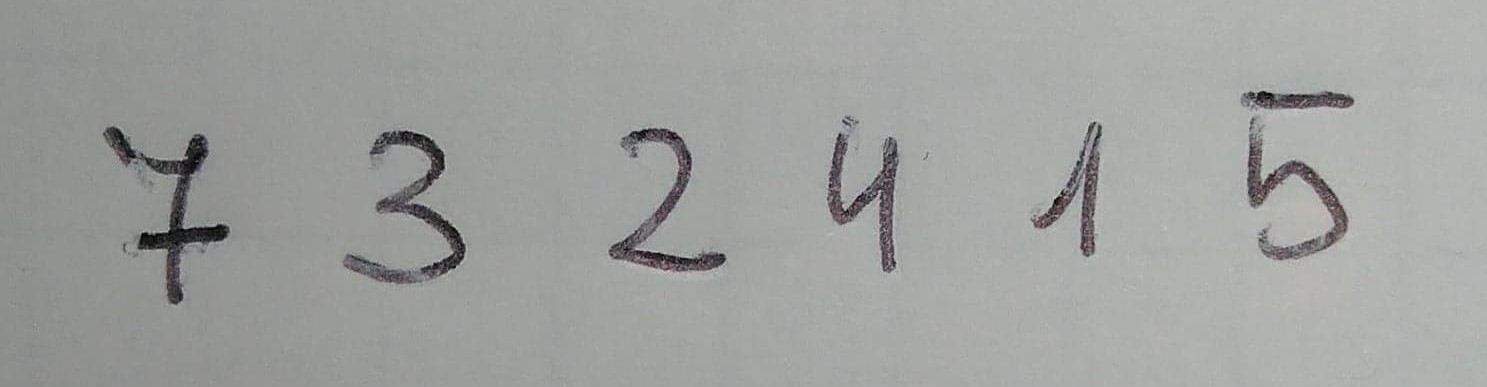 7 3 2 4 1 5